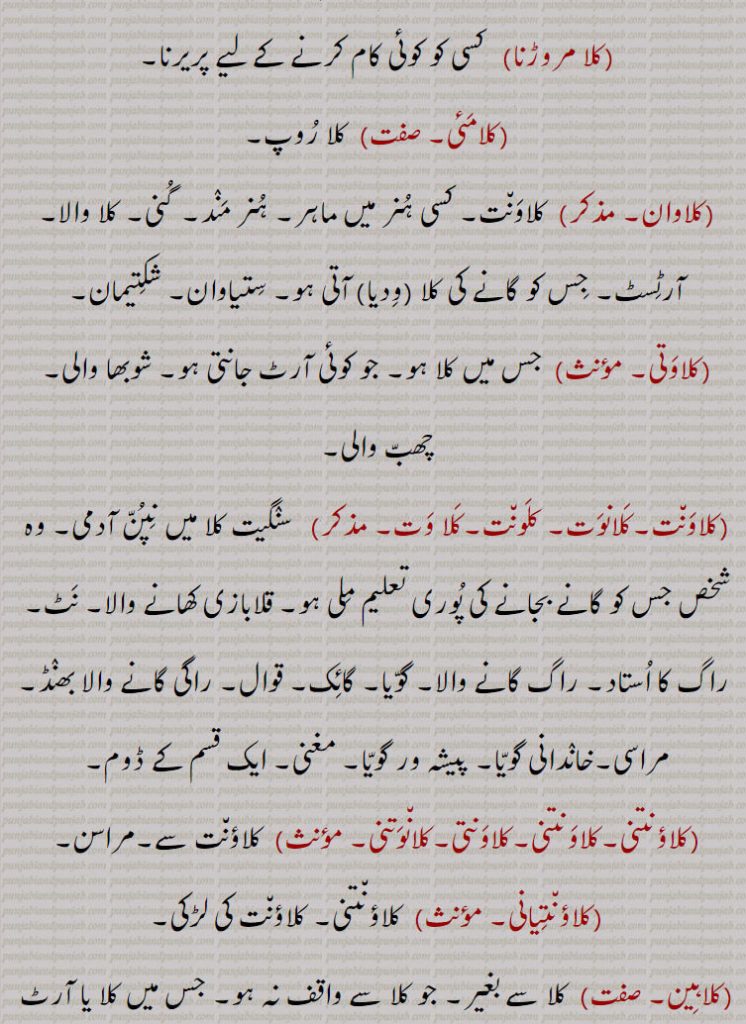 (کلا مروڑنا) کسی کو کوئی کام کرنے کے لیے پریرنا۔
(کلامَئی۔ صفت) کلا رُوپ۔
(کلاوان۔ مذکر) کلاوَنّت۔ کسی ہُنر میں ماہر۔ ہُنر مَنْد۔ گُنی۔ کلا والا۔
آرٹِسٹ۔ جِس کو گانے کی کلا (وِدیا) آتی ہو۔ سِتیاوان۔ شکتِیمان۔
(کلاوَتی۔ مؤنث) جس میں کلا ہو۔ جو کوئی آرٹ جانتی ہو۔ شوبھا والی۔
چھبّ والی۔
(کلاوَنّت۔کَلانوَت۔ کلَونّت۔کَلا وَت۔ مذکر) سنْگیت کلا میں نِپُنّ آدمی۔ وہ
شخص جس کو گانے بجانے کی پُوری تعلیم مِلی ہو۔ قلابازی کھانے والا۔ نَٹ۔
راگ کا اُستاد۔ راگ گانے والا۔ گوّیا۔ گائِک۔ قوال۔ راگی گانے والا بھنْڈ۔
مراسی۔خانْدانی گویّا۔ پیشہ ور گویّا۔ مغنی۔ ایک قسم کے ڈوم۔
(کلاؤنتنی۔کلاوَنتنی۔کلاوَنتی۔کلانّوَتنی۔ مؤنث) کلاؤنّت سے۔مراسن۔
(کلاؤنّتِیانی۔ مؤنث) کلاؤنّتنی۔ کلاؤنّت کی لڑکی۔
(کلاہِین۔ صفت) کلا سے بغیر۔ جو کلا سے واقف نہ ہو۔ جس میں کلا یا آرٹ